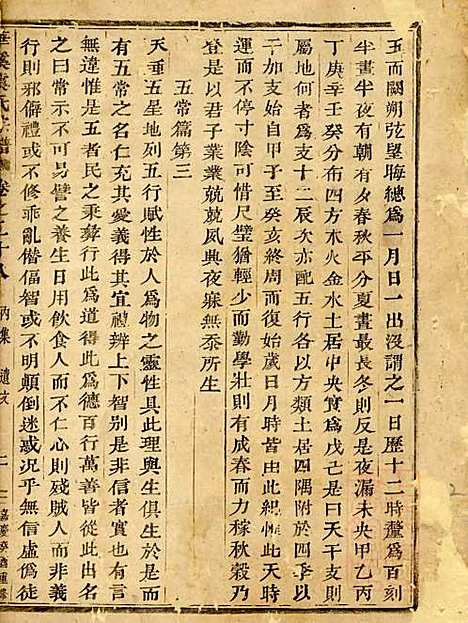 玉而闕朔弦望晦總爲一月日一出沒謂之一日歷十二時釐爲百刻
半晝半夜有朝有夕春秋平分夏晝最長冬則反是夜漏未央甲乙丙
丁庚辛壬癸分布四方木火金水土居中央實爲戊己是曰天干支則
屬地何者爲支十二辰次亦配五行各以方類土居四隅附於四季以
干加支始自甲子至癸亥終周而復始歲日月時皆由此起天地無息
運而不停寸陰可惜尺璧猶輕少而勤學壯則有成春而力稼秋穀乃
登是以君子業業兢兢夙興夜寐無忝所生
五常篇第三
天垂五星地列五行賦性於人爲物之靈性具此理與生俱生所性
有五常之名仁充其愛義得其宜禮辨上下智別是非信者實也有言
無違惟是五者民之秉彝行此爲道得此爲德百行萬善皆從此出名
之曰常示不可易譬之養生日用飲食人而不仁心則殘賊人而非義
行則邪僻禮或不修乖亂僭偪智或不明顛倒迷惑况乎無信虛爲徒
氏宗譜 卷之十八 丙集 遺文 二 嘉慶